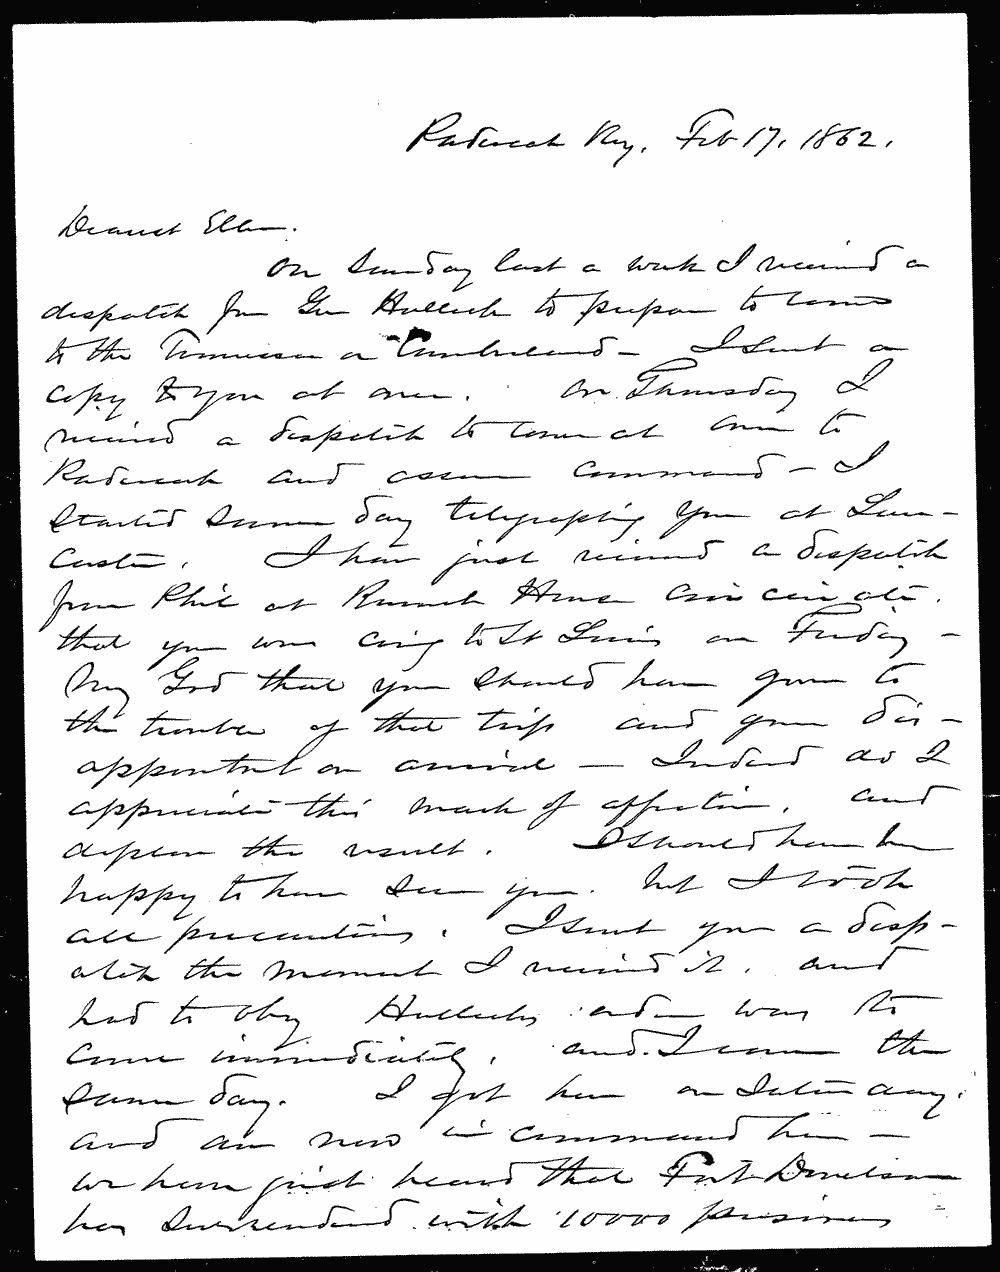 Paducah Ky, Feb 17, 1862.
Dearest Ellen.
On Sunday last a week I received a
dispatch from Gen Halleck to prepare to come
to the Tennessee or Cumberland - I sent a
copy to you at once. On Thursday I
received a dispatch to come at once to
Paducah and assume command - I
started same day telegraphing you at Lan-
caster. I have just received a dispatch
from Phil at Burnet House Cincinnati.
that you were coming to St Louis on Friday -
My God that you should have gone to
the trouble of that trip and your dis-
appointment on arrival - Indeed do I
appreciate this mark of affection, and
deplore the result. I should have been
happy to have seen you. but I took
all precautions. I sent you a disp-
atch the moment I received it, and
had to obey Hallecks order was to
come immediately, and I came the
same day. I got here on Saturday.
and am now in command here -
we have just heard that Fort Donelson
has surrendered with 10000 prisoners